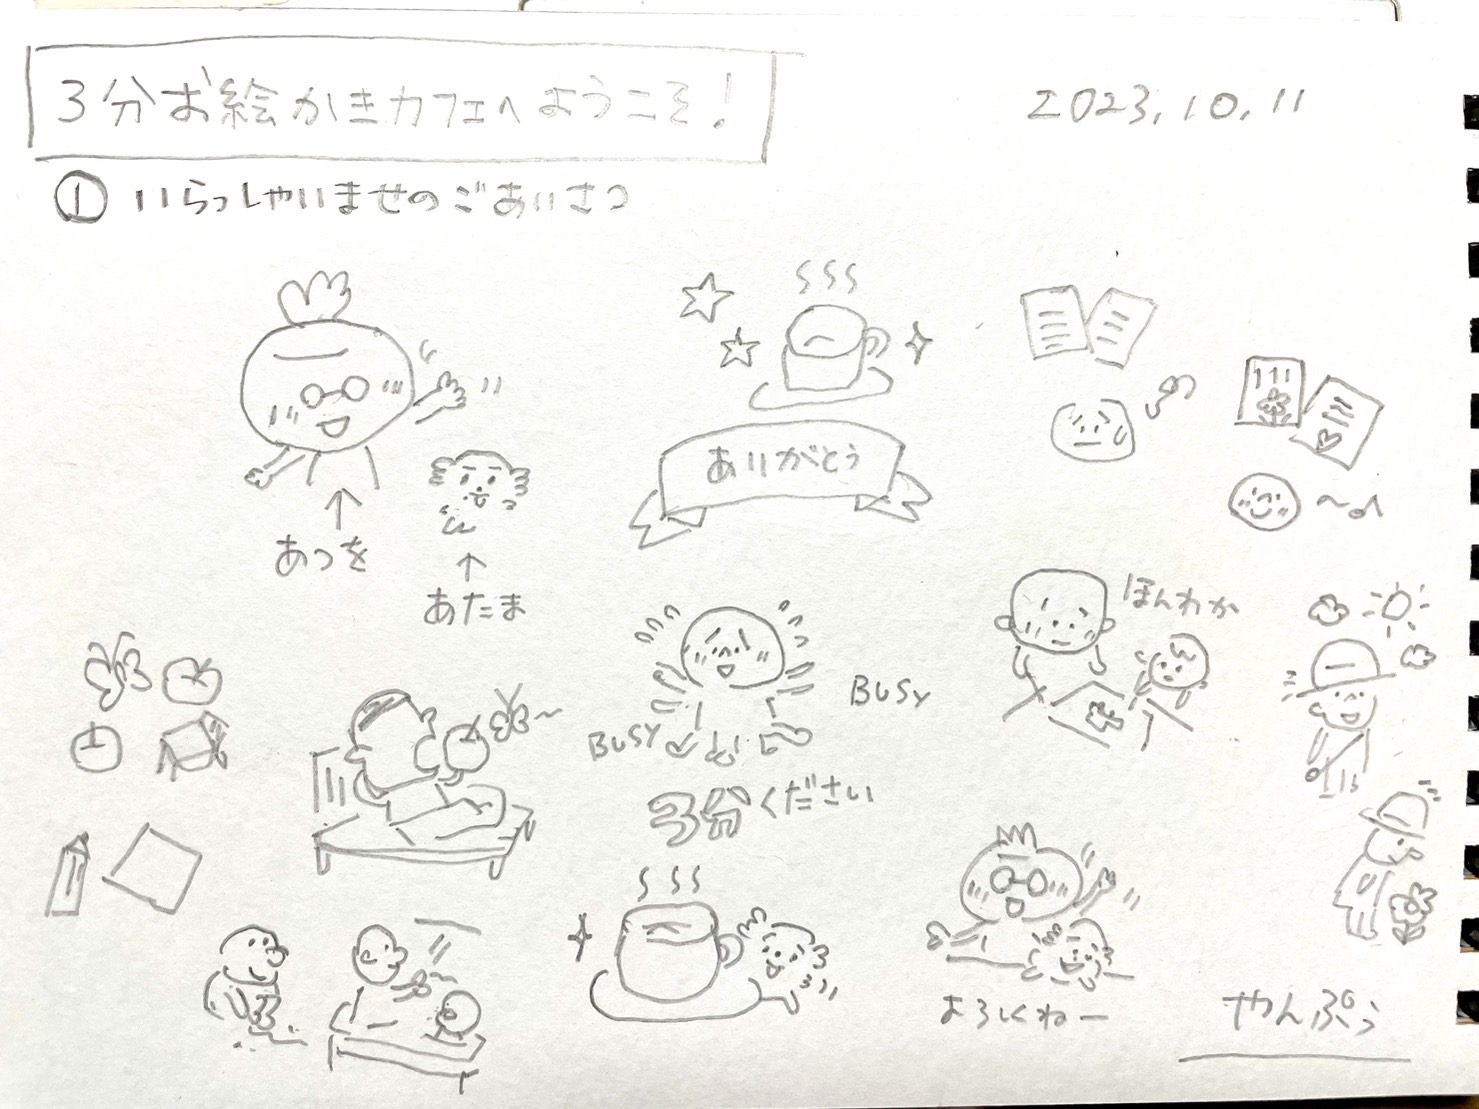 3分お絵かきカフェへようこそ!
2023.10.11
① いらっしゃいませのごあいさつ
ありがとう
あつを
あたま
ほんわか
BUSY
BUSY
3分ください
よろしくねー
やんぷぅ